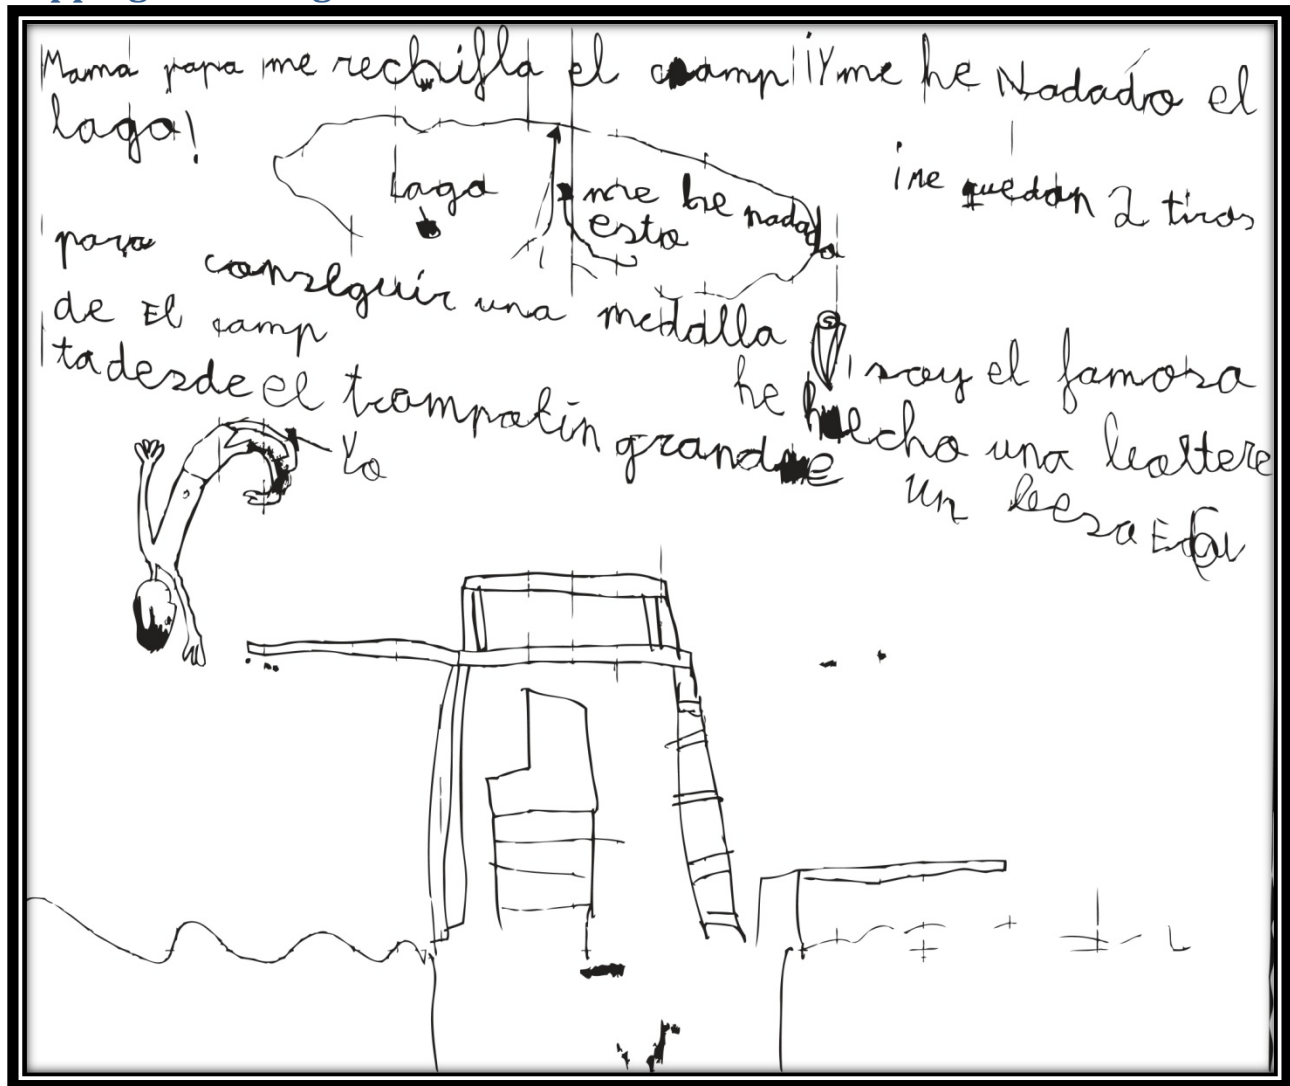 Mamá papa me rechifla el camp ¡¡Y me he Nadado el
lago!
Lago
me he nadado
esto
¡me quedan 2 tiros
para conseguir una medalla
de El camp
soy el famoso
he hecho una
ta desde el trampolín grande
Un
Yo